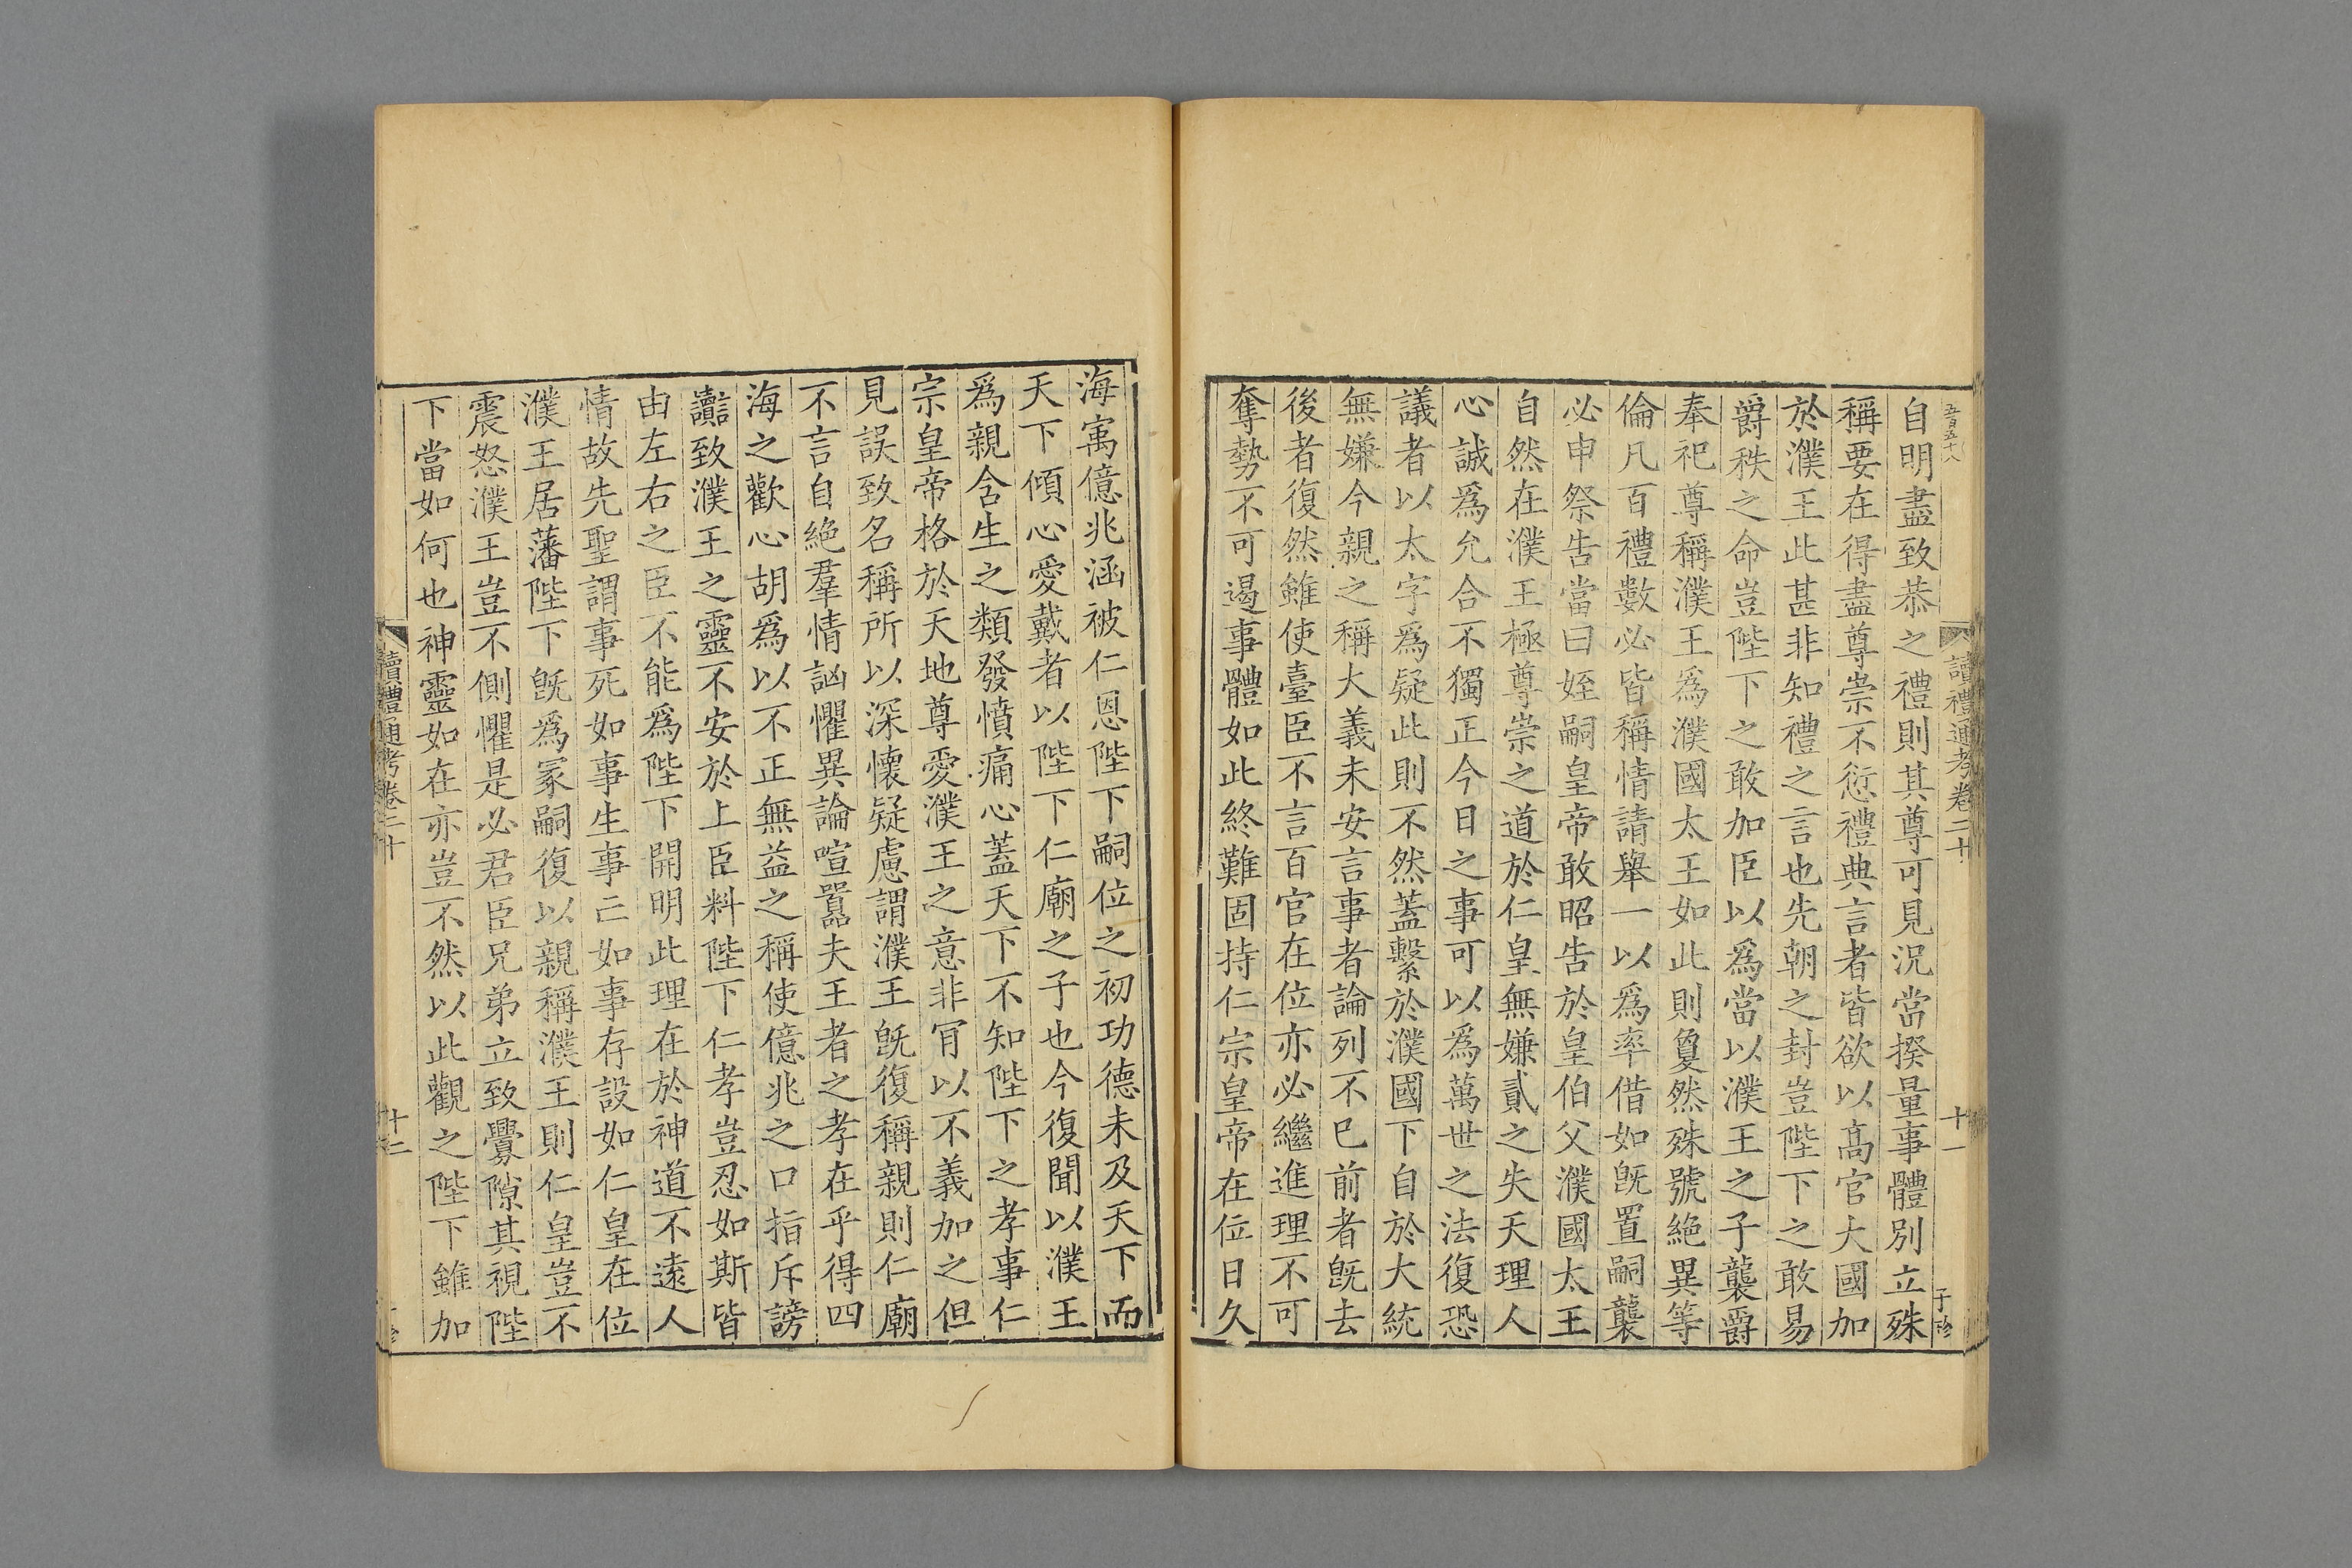 五百五十八
讀禮通考卷二十
十一
自明盡致恭之禮則其尊可見況當揆量事體別立殊
稱要在得盡尊崇不愆禮典言者皆欲以高官大國加
於濮王此甚非知禮之言也先朝之封豈陛下之敢易
爵秩之命豈陛下之敢加臣以為當以濮王之子襲爵
奉祀尊稱濮王為濮國太王如此則敻然殊號絕異等
倫凡百禮數必皆稱情請舉一以為率借如旣置嗣襲
必申祭告當曰姪嗣皇帝敢昭告於皇伯父濮國太王
自然在濮王極尊崇之道於仁皇無嫌貳之失天理人
心誠為允合不獨正今日之事可以為萬世之法復恐
議者以太字為疑此則不然蓋繫於濮國下自於大統
無嫌今親之稱大義未安言事者論列不已前者旣去
後者復然雖使臺臣不言百官在位亦必繼進理不可
奪勢不可遏事體如此終難固持仁宗皇帝在位日久
海寓億兆涵被仁恩陛下嗣位之初功德未及天下而
天下傾心愛戴者以陛下仁廟之子也今復聞以濮王
爲親含生之類發憤痛心蓋天下不知陛下之孝事仁
宗皇帝格於天地尊愛濮王之意非肎以不義加之但
見誤致名稱所以深懷疑慮謂濮王旣復稱親則仁廟
不言自絕羣情訩懼異論喧囂夫王者之孝在乎得四
海之歡心胡爲以不正無益之稱使億兆之口指斥謗
讟致濮王之靈不安於上臣料陛下仁孝豈忍如斯皆
由左右之臣不能爲陛下開明此理在於神道不遠人
情故先聖謂事死如事生事亡如事存設如仁皇在位
濮王居藩陛下旣爲冢嗣復以親稱濮王則仁皇豈不
震怒濮王豈不側懼是必君臣兄弟立致釁隙其視陛
下當如何也神靈如在亦豈不然以此觀之陛下雖加
讀禮通考卷二十
十二